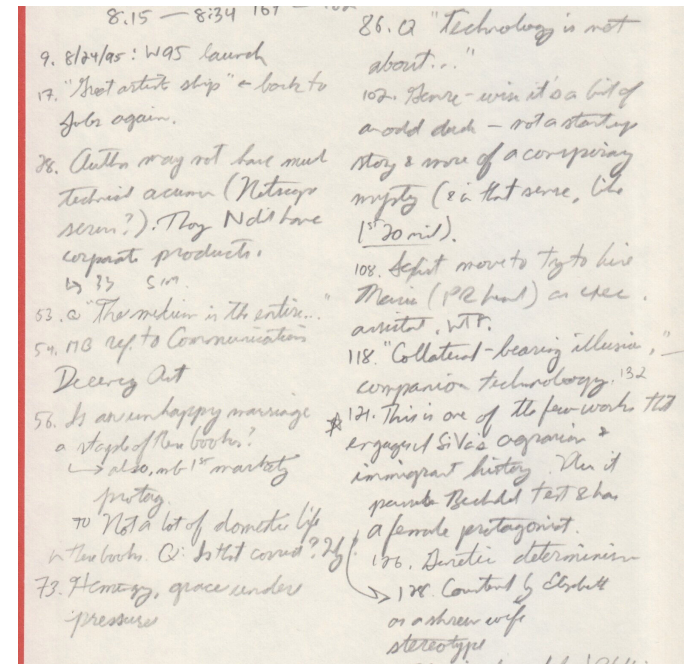 8:15 — 8:34 167 —
9. 8/24/95: W95 launch
17. "Great artists ship" ← back to
Jobs again.
28. Author may not have much
technical acumen (Netscape
server?). They Ndid have
corporate products.
↳ 33
53. Q "The medium is the entire..."
54. NB ref. to Communication
Decency Act
56. Is an unhappy marriage
a staple of these books?
↳ also, nb 1st marketing
protag.
70 Not a lot of domestic life
in these books. Q: Is that correct? If
73. Heminway, grace under
pressure
86. Q "Technology is not
about..."
102. Genre-wise it's a bit of
an odd duck – not a startup
story & more of a conspiracy
mystery (& in that sense, like
1st 20 mil).
108. Sexist move to try to hire
Marie (PR head) as exec.
assistant. WTF.
118. "Collateral-bearing illusion," –
companion technology. 132
☆ 121. This is one of the few works that
engages SiVa's agrarian &
immigrant history. Plus it
passes Bechdel test & has
a female protagonist.
126. Genetic determinism
→ 128. Constant by Elizabeth
as a shrew wife
stereotype